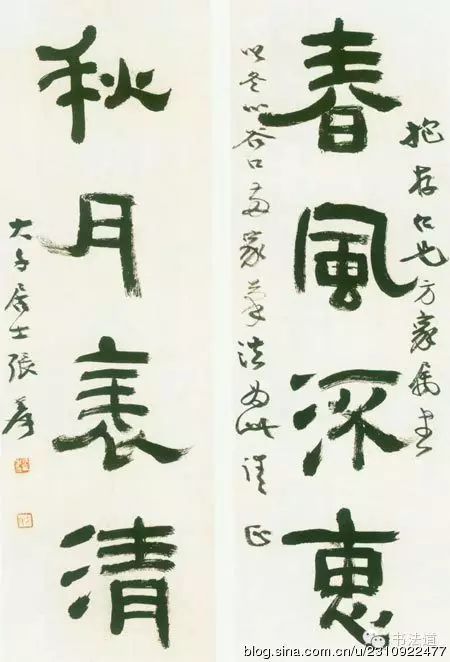 抱存仁兄方家屬書
春風深惠
以冬心谷口兩家筆法為此請正
秋月表清
大千居士張爰
书法道
blog.sina.com.cn/u/2310922477